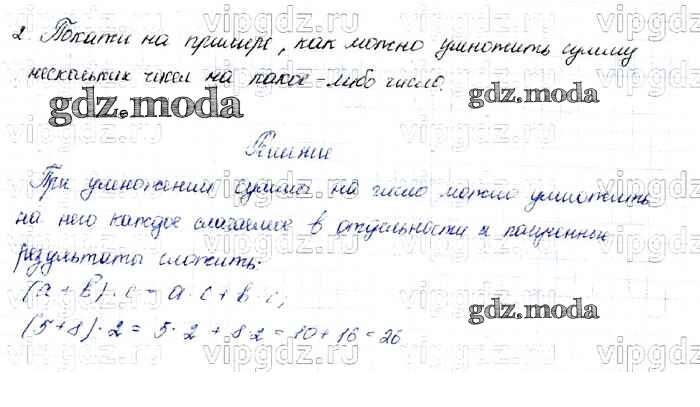 2. Покажи на примере, как можно умножить сумму
нескольких чисел на какое-либо число.
gdz.moda
gdz.moda
Решение
При умножении суммы на число можно умножить
на него каждое слагаемое в отдельности и полученные
результаты сложить.
(a + b) · c = a · c + b · c,
gdz.moda
(5+8) · 2 = 5 · 2 + 8 · 2 = 10 + 16 = 26
vipgdz.ru